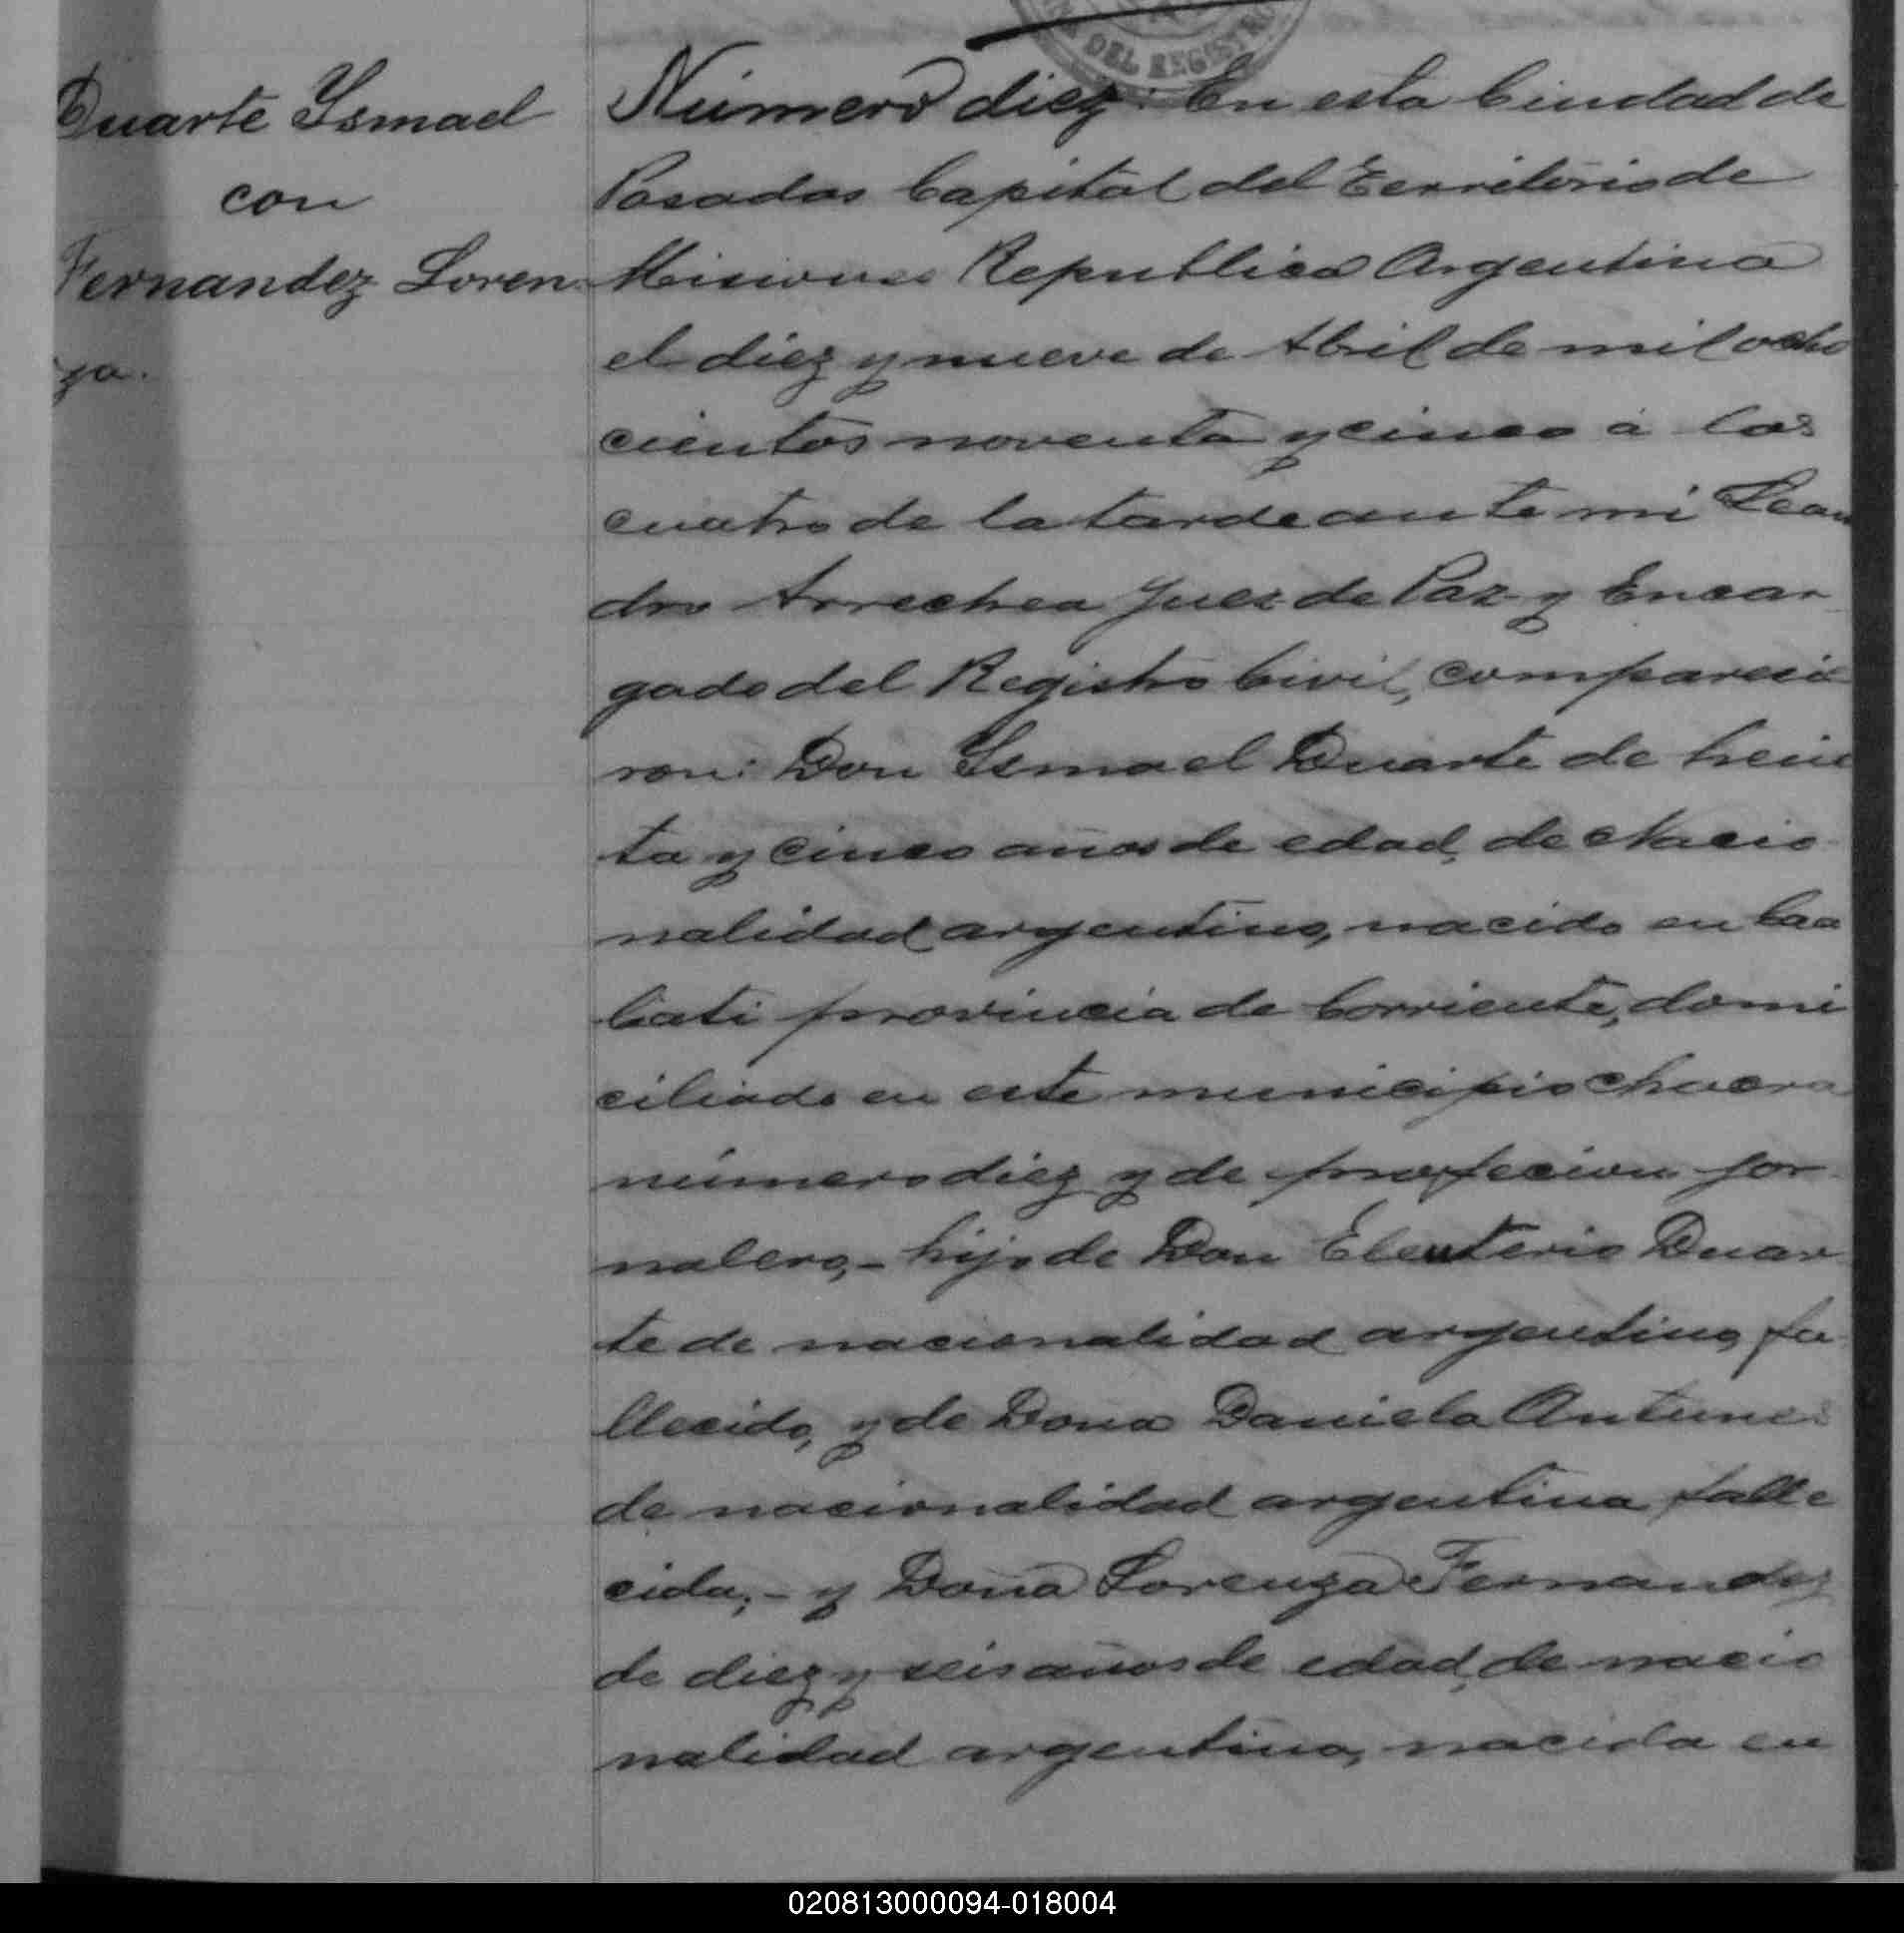 DEL REGISTRO
Duarte Ysmael
con
Fernandez Loren
za.
Número diez: En esta Ciudad de
Posadas Capital del Territorio de
Misiones Republica Argentina
el diez y nueve de Abril de mil ocho
cientos noventa y cinco á las
cuatro de la tarde ante mi Lean
dro Arrechea Juez de Paz y Encar
gado del Registro Civil, comparecie
ron: Don Ysmael Duarte de trein
ta y cinco años de edad, de Nacio
nalidad argentino, nacido en Caa
Cati provincia de Corriente, domi
ciliado en este municipio chacra
número diez y de profecion jor
nalero,- hijo de Don Eleuterio Duar
te de nacionalidad argentino, fa
llecido, y de Dona Daniela Antunes
de nacionalidad argentina falle
cida,- y Doña Lorenza Fernandez
de diez y seis años de edad, de nacio
nalidad argentina, nacida en
020813000094-018004